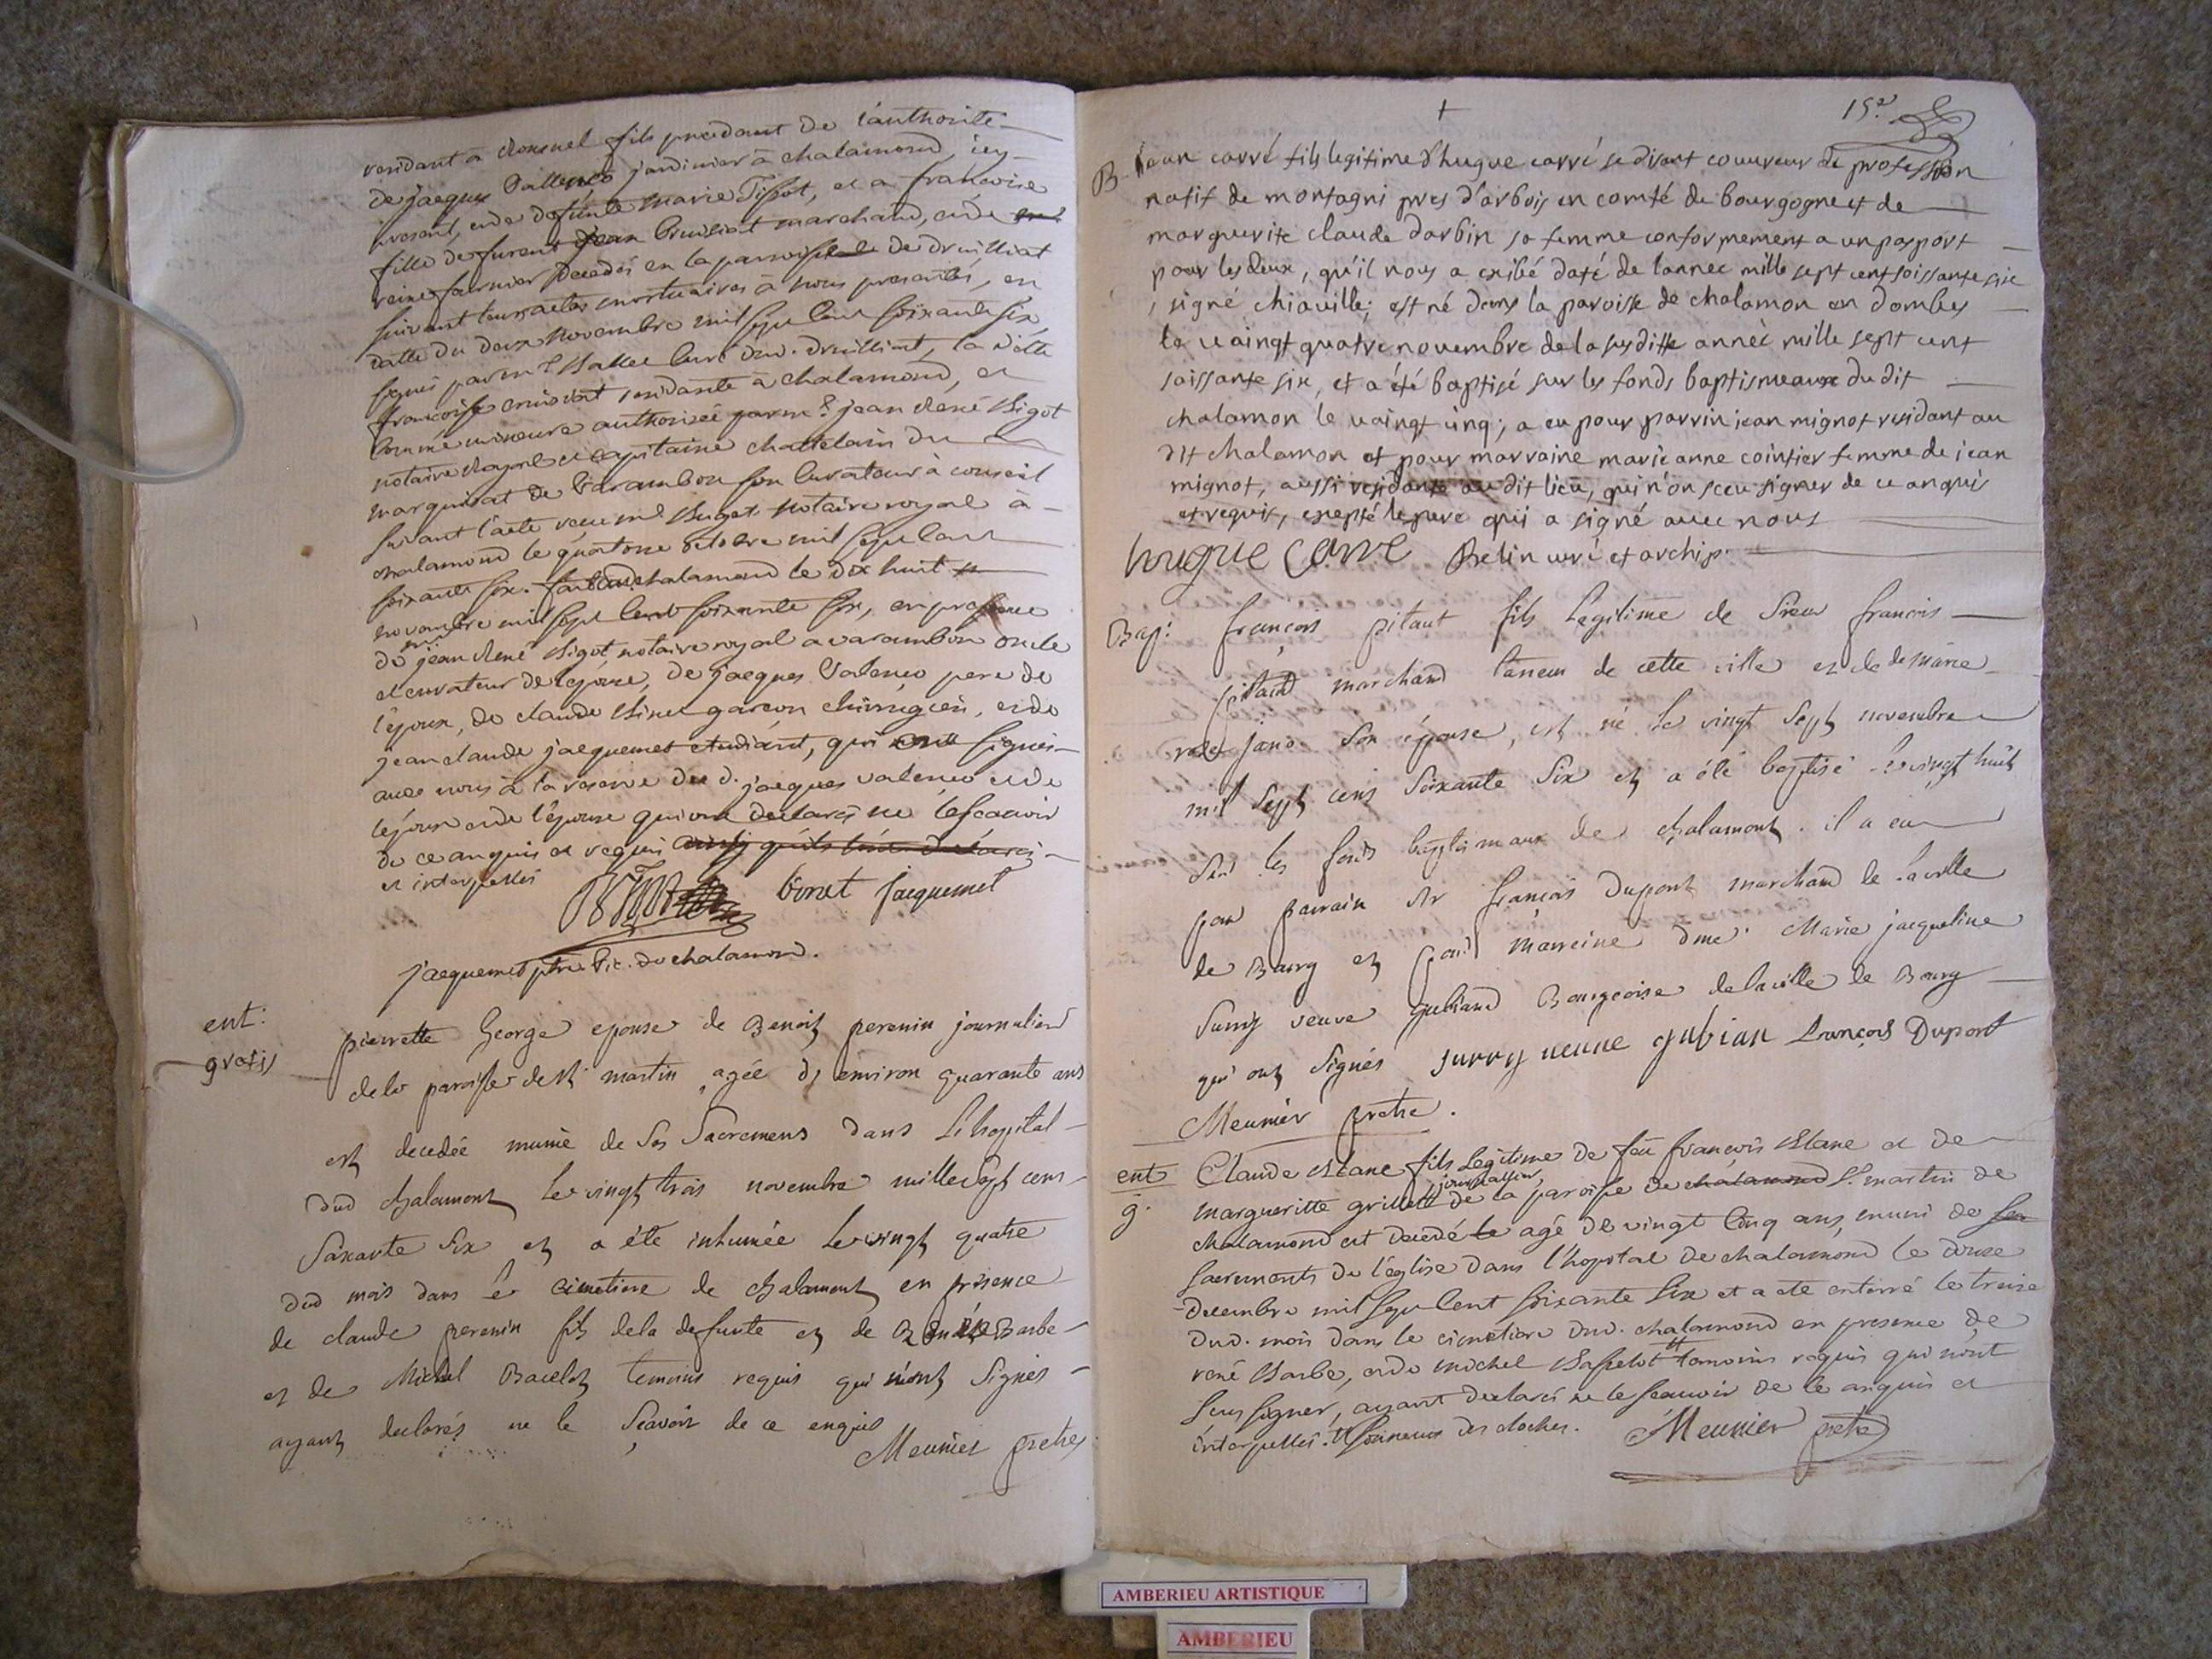 residant a fils procedant de l'authorité
de jacques Vallenco jardinier à chalamond, icy
present, et de defunte marie Tissot, et a francoise
fille de furent jean marchand, et de
reine farnier decedés en la paroisse de druilliat
suivant leurs actes mortuaires à nous presentés, en
datte du deux novembre mil sept cent soixante six
signés par mr Ballet curé dud. druilliat, la ditte
francoise residante à chalamond, et
comme mineure authorisée par mr jean René Bigot
notaire Royal et capitaine chattelain du
marquisat de Varambon son curateur à conseil
suivant l'acte receu mr notaire royal à
chalamond le quatorse octobre mil sept cent
soixante six. fait aud chalamond le dix huit
novembre mil sept cent soixante six, en presence
de mr jean René Bigot notaire royal a varambon oncle
et curateur de l'epouse, de jacques Valenco pere de
l'époux, de claude Binet garcon chirurgien, et de
jean claude jacquemet etudiant, qui ont signés
avec nous à la reserve du d. jacques valenco et de
l'époux et de l'épouse qui ont declarés ne le scavoir
de ce anquis et requis
et interpellés
binet jacquemet
jacquemet ptre vic. de chalamond.
ent:
gratis
pierrette George epouse de Benoit perenin journalier
de la paroisse de st martin agée d'environ quarante ans
est decedée munie de ses Sacremens dans L'hopital
dud chalamont Le vingt trois novembre mille sept cens
Soixante Six et a été inhumée Le vingt quatre
dud mois dans le cimetiere de chalamont en présence
de claude perenin fils de la defunte et de René Barbe
et de Michel Bacelot temoins requis qui n'ont signés
ayant declarés ne le Scavoir de ce enquis
Meunier pretre
+
15e
B. jean carré fils legitime d'hugue carré se disant couvreur de profession
natif de montagni pres d'arbois en comté de bourgogne et de
marguerite claude darbin sa femme conformement a un pasport
pour les deux, qu'il nous a exibé daté de lannee mille sept cent soissante six
, signé chiaville; est né dans la paroisse de chalamon en dombes
le vaingt quatre novembre de la susditte année mille sept cent
soissante six, et a été baptisé sur les fonds baptismeaux du dit
chalamon le vaingt cinq; a eu pour parrin jean mignot residant au
dit chalamon et pour marraine marie anne cointier femme de jean
mignot, aussi residante au dit lieu, qui n'on sceu signer de ce anquis
et requis, exepté le pere qui a signé avec nous
hougue carre Belin curé et archip.
Bap: françois pitaut fils Legitime de Sieur francois
pitaud marchand taneur de cette ville et de de marie
rose jand Son épouse, est né Le vingt Sept novembre
mil Sept cens Soixante Six et a été baptisé Le vingt huit
Sur les fonds baptismaux de chalamont. il a eu
pour parain Sr françois Dupont marchand de la ville
de Bourg et pour mareine dme Marie jacqueline
Surry veuve gubiand Bourgeoise de la ville de Bourg
qui ont Signés surry veuve gubian francois Dupont
Meunier pretre.
ent
g.
Claude Blanc fils Legitime de feu françois Blanc et de
margueritte grillet journallier de la paroisse de chalamond St martin de
chalamond est decedé le agé de vingt cinq ans, muni de ses
sacrements de l'église dans l'hopital de chalamond le douze
decembre mil sept cent soixante six et a ete enterré le treize
dud. mois dans le cimetiere dud. chalamond en presence de
rené Barbe, et de michel Basselot temoins requis qui n'ont
sceu signer, ayant declarés ne le sçauvoir de ce anquis et
interpellés. sonneur des cloches. Meunier pretre
AMBERIEU ARTISTIQUE
AMBERIEU